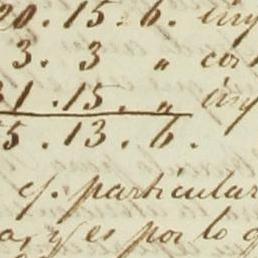 20. 15. 6. in
3. 3 „ co
31. 15. „ in
5. 13. 6.
c/. particular
a, y es por lo q